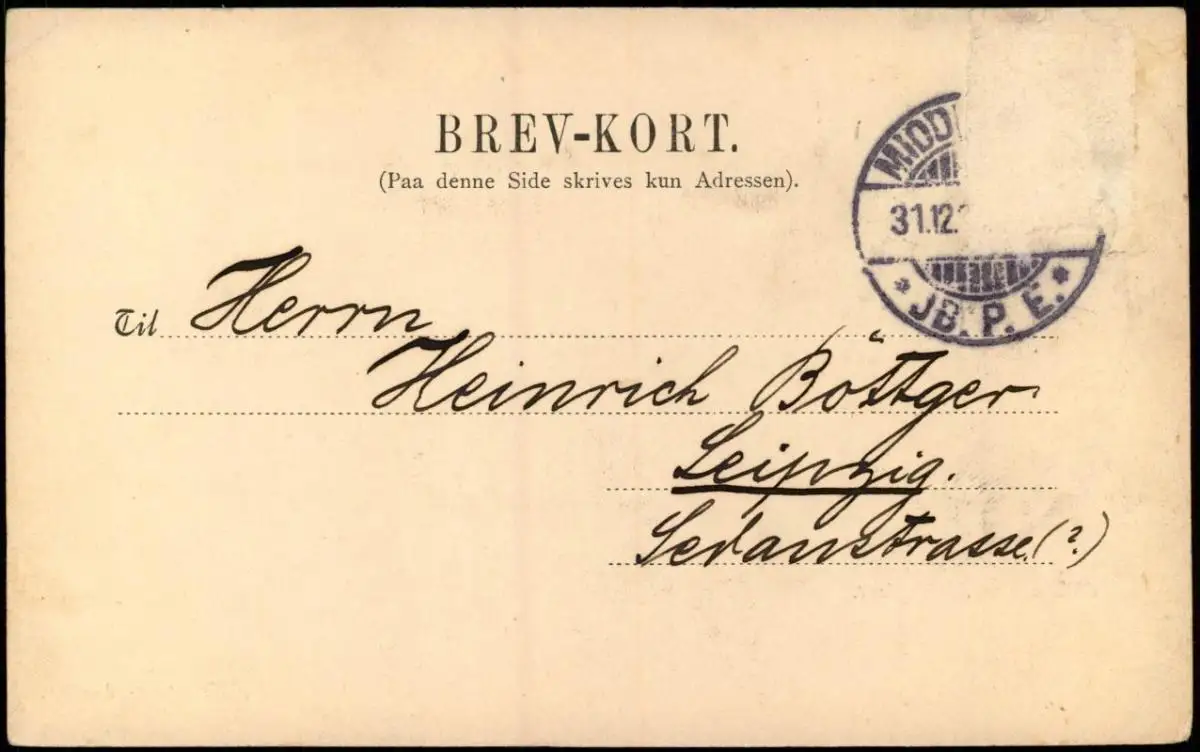 BREV-KORT.
(Paa denne Side skrives kun Adressen).
Til Herrn
Heinrich Böttger
Leipzig.
Sedanstrasse.(?)
31.12.
* JB. P. E. *